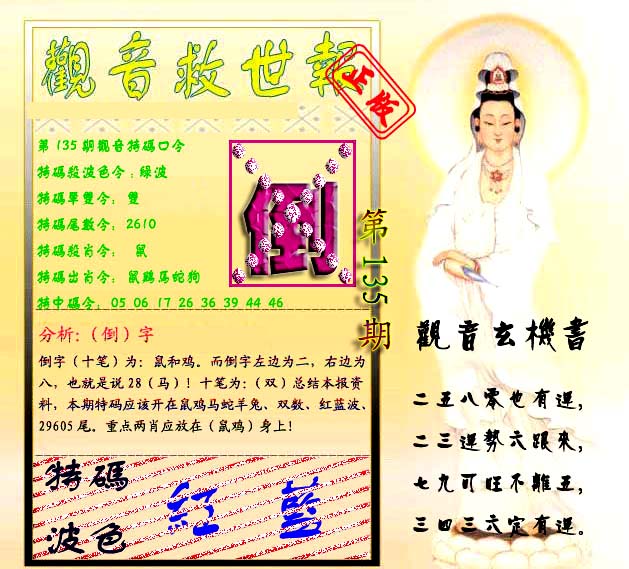 觀音救世報
第135期觀音特碼口令
特碼殺波色令：綠波
特碼單雙令： 雙
特碼尾數令：2610
特碼殺肖令： 鼠
特碼出肖令： 鼠鷄馬蛇狗
特中碼令：05 06 17 26 36 39 44 46
倒
第135期
分析：（倒）字
倒字（十笔）为：鼠和鸡。而倒字左边为二，右边为
八，也就是说28（马）！十笔为：（双）总结本报资
料，本期特码应该开在鼠鸡马蛇羊兔、双数、红蓝波、
29605尾。重点两肖应放在（鼠鸡）身上！
特碼
波色
紅 藍
觀音玄機書
二五八零也有運，
二三運勢六跟來，
七九可旺不離五，
三四三六定有運。